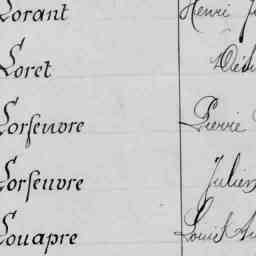 Lorant Henri
Loret
Lorfeuvre Pierre
Lorfeuvre Julien
Louapre Louis